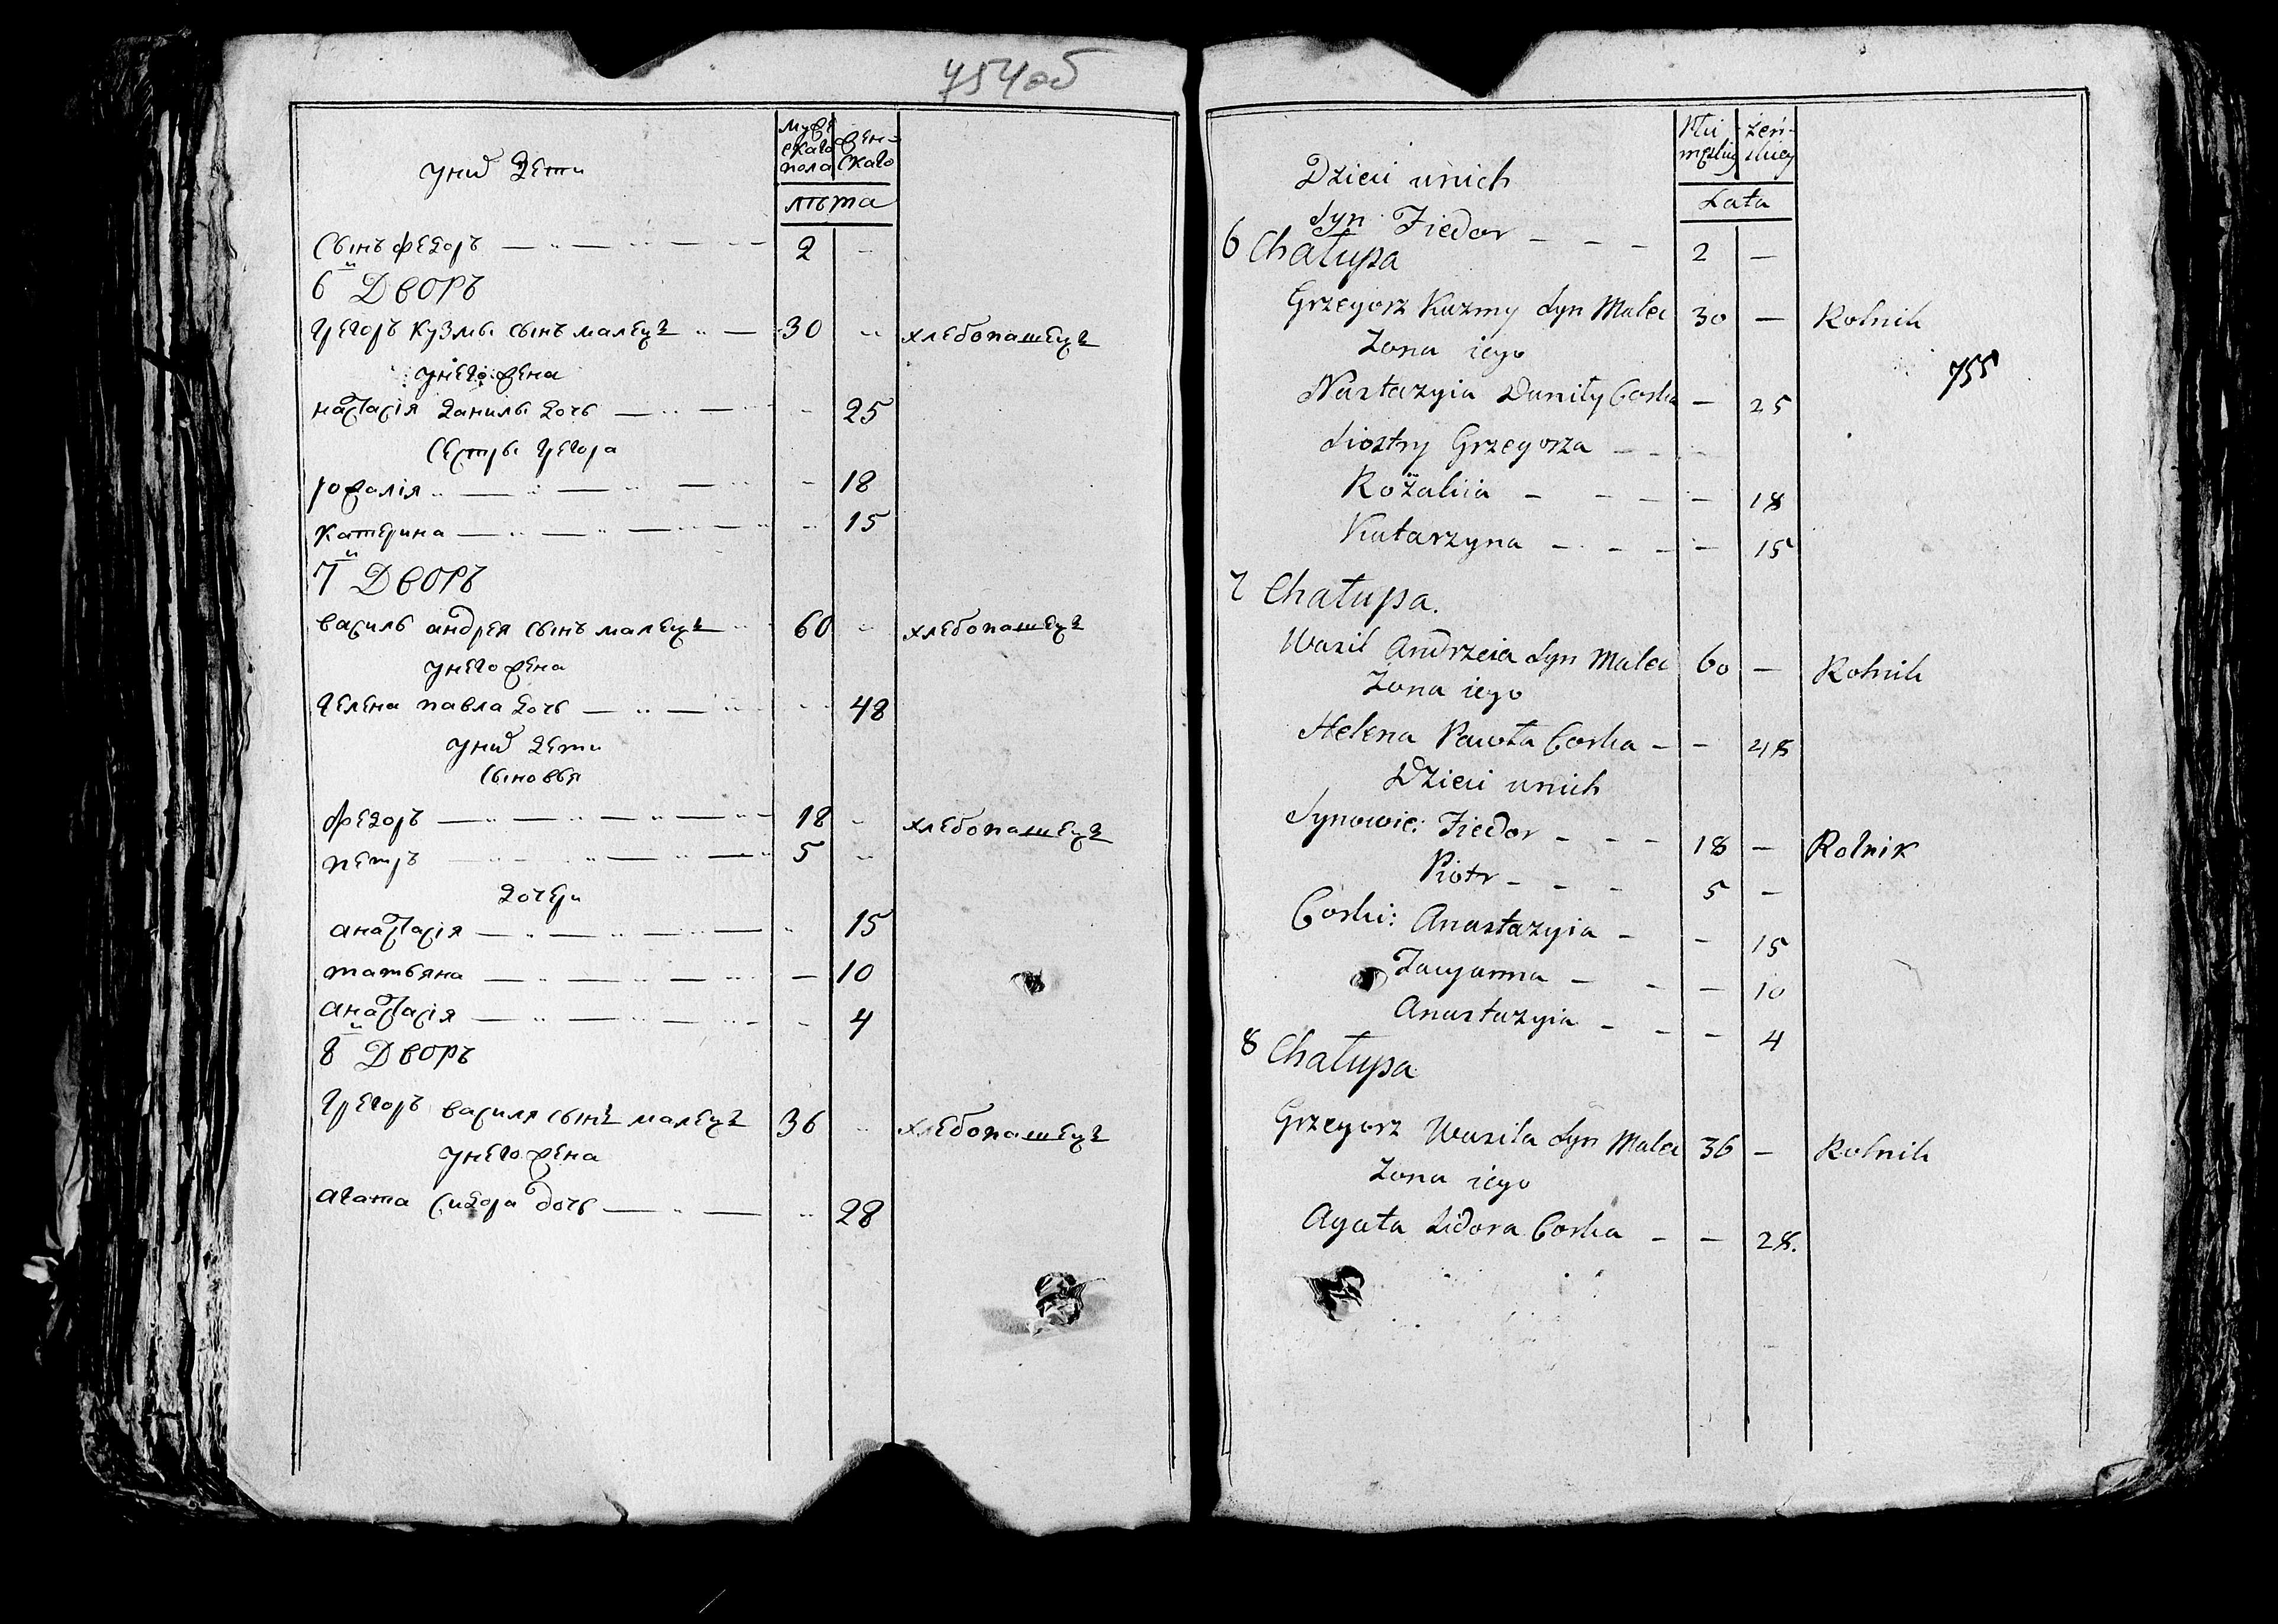 754об
мужескаго пола
женскаго
лѣта
у них дети
сынъ федоръ 2 -
6й Дворъ
Грегоръ кузмы сынъ малецъ 30 хлебопашецъ
у него жена
настасія данилы дочь - 25
сестры Грегора
рожалія - 18
катерина - 15
7й Дворъ
василь андрея сынъ малецъ 60 хлебопашецъ
у него жена
гелена павла дочь - 48
у них дети
сыновья
федоръ 18 хлебопашецъ
петръ 5
дочери
анастасія - 15
татьяна - 10
анастасія - 4
8й Дворъ
Грегоръ василя сынъ малецъ 36 хлебопашецъ
у него жена
агата сидора дочь 28
Płci męskiey
żeńskiey
Lata
Dzieci u nich
Syn Fiedor - - - 2 -
6 Chałupa
Grzegorz Kuzmy Syn Malec 30 - Rolnik
Zona iego
755
Nastazyia Daniły Corka - 25
Siostry Grzegorza - - -
Rożaliia - - - - 18
Katarzyna - - - - 15
7 Chałupa.
Wasil Andrzeia Syn Malec 60 - Rolnik
Zona iego
Helena Pawła Corka - - 48
Dzieci u nich
Synowie: Fiedor - - - 18 - Rolnik
Piotr - - - 5 -
Corki: Anastazyia - - 15
Tacyanna - - - 10
Anastazyia - - - 4
8 Chałupa
Grzegorz Wasila Syn Malec 36 - Rolnik
Zona iego
Agata Sidora Corka - - 28.